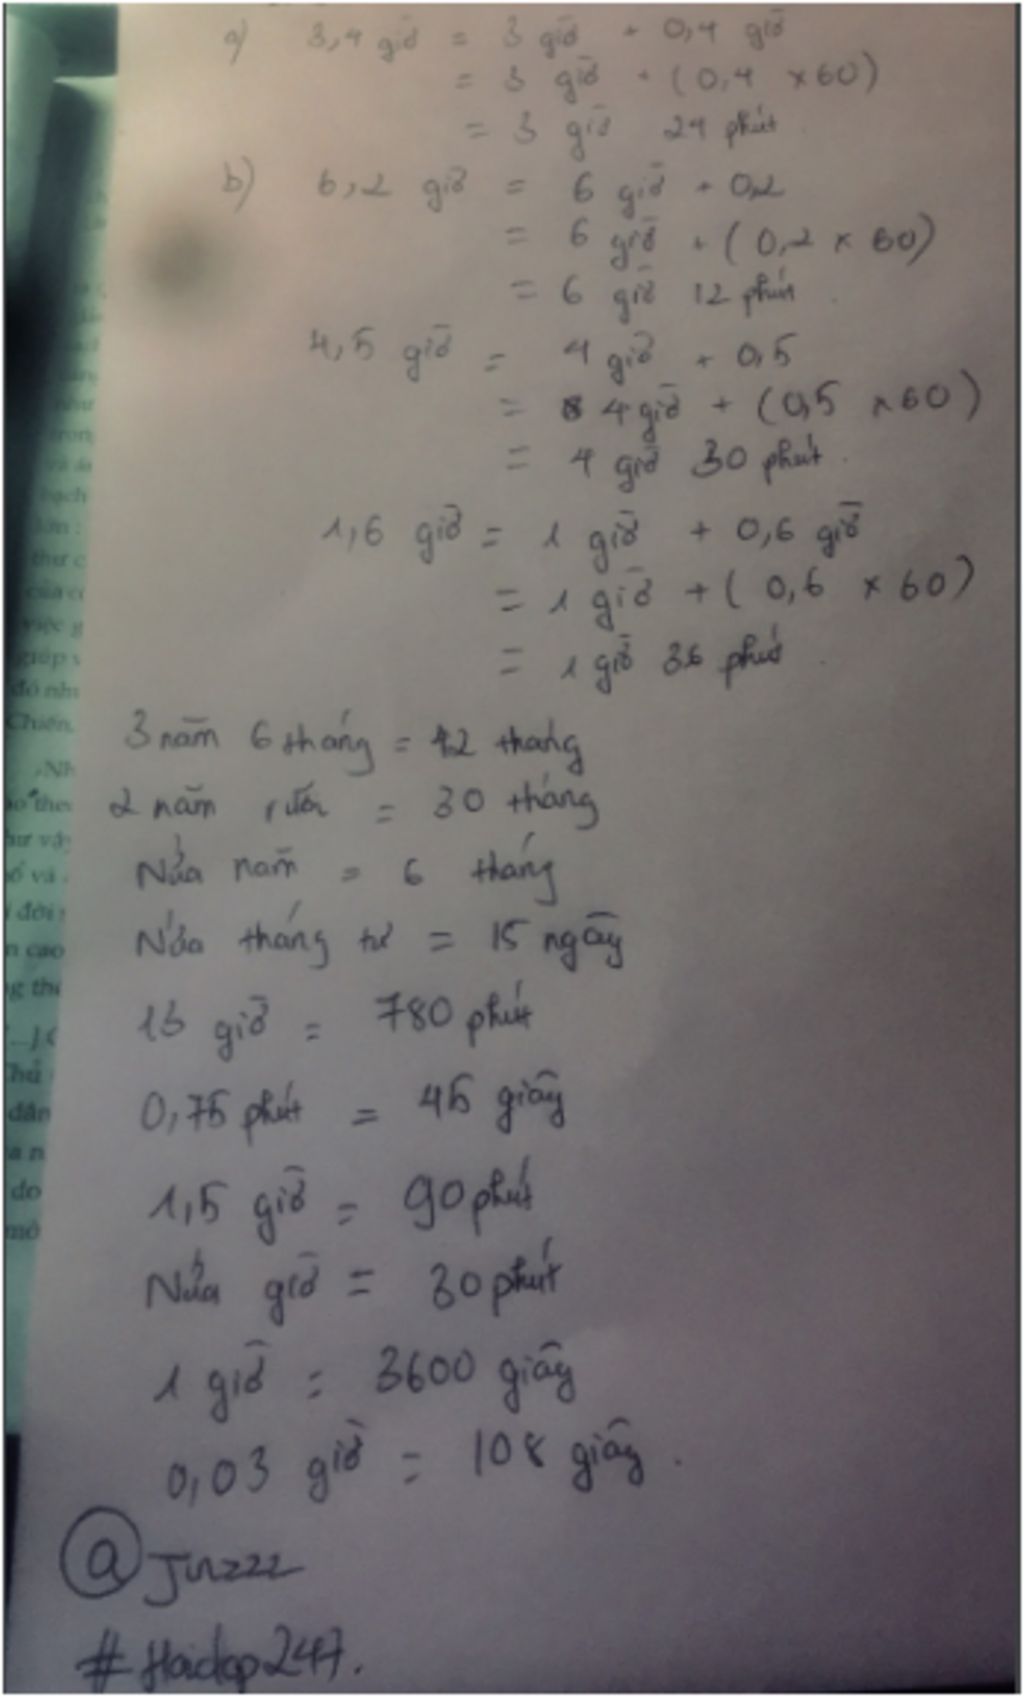 a) 3,4 giờ = 3 giờ + 0,4 giờ
= 3 giờ + (0,4 x 60)
= 3 giờ 24 phút
b) 6,2 giờ = 6 giờ + 0,2
= 6 giờ + (0,2 x 60)
= 6 giờ 12 phút.
4,5 giờ = 4 giờ + 0,5
= 4 giờ + (0,5 x 60)
= 4 giờ 30 phút.
1,6 giờ = 1 giờ + 0,6 giờ
= 1 giờ + (0,6 x 60)
= 1 giờ 36 phút.
3 năm 6 tháng = 42 tháng
2 năm rưỡi = 30 tháng
Nửa năm = 6 tháng
Nửa tháng tư = 15 ngày
13 giờ = 780 phút
0,75 phút = 45 giây
1,5 giờ = 90 phút
Nửa giờ = 30 phút
1 giờ = 3600 giây
0,03 giờ = 108 giây.
@Jinzzz
#Hoidap247.